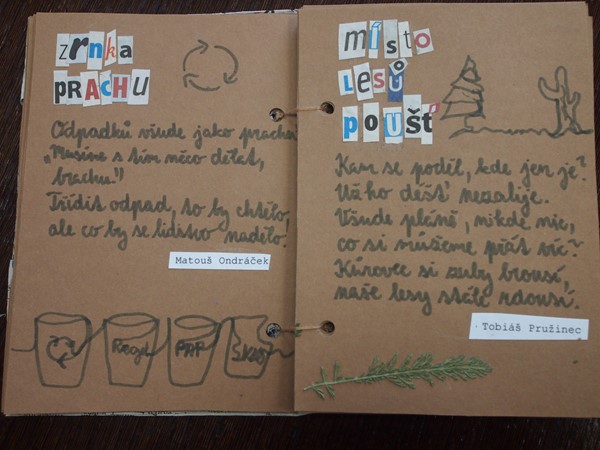 zrnka
PRACHU
Odpadků všude jako prachu
„Musíme s tím něco dělat,
brachu!"
Třídit odpad, to by chtělo!
ale co by se lidstvo nadělo.
Matouš Ondráček
PAP
místo
LESŮ
poušť
Kam se poděl, kde jen je?
Už ho déšť nezalije.
Všude pláně, nikde nic,
co si můžeme přát víc?
Kůrovec si zuby brousí,
naše lesy stále rdousí.
Tobiáš Pružinec